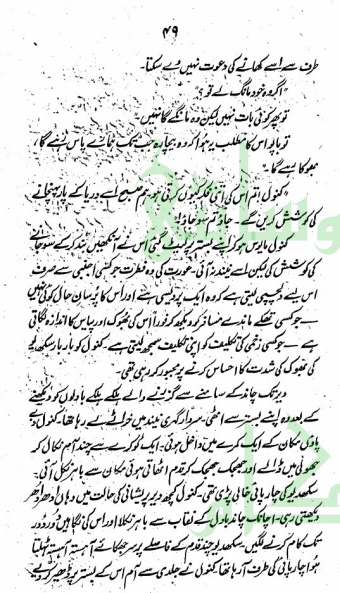 ۴۹
طرف سے اسے کھانے کی دعوت نہیں دے سکتا۔
"اگر وہ خود مانگ لے تو؟"
تو پھر کوئی بات نہیں لیکن وہ مانگے گا نہیں۔
تو باپو اس کا مطلب یہ ہوا کہ وہ بیچارہ جب تک ہمارے پاس رہے گا
بھوکا رہے گا۔"
"کنول! تم اس کی اتنی فکر کیوں کرتی ہو۔ ہم صبح اسے دریا کے پار پہنچانے
کی کوشش کریں گے۔ جاؤ تم سو جاؤ!"
کنول مایوس ہو کر اپنے بستر پر لیٹ گئی اس نے آنکھیں بند کر کے سو جانے
کی کوشش کی لیکن اسے نیند نہ آئی۔ عورت کی وہ فطرت جو کسی اجنبی سے صرف
اس لیے دلچسپی لیتی ہے کہ وہ ایک پردیسی ہے اور اس کا پُرسانِ حال کوئی نہیں
— جو کسی تھکے ماندے مسافر کو دیکھ کر فوراً اس کی بھوک اور پیاس کا اندازہ لگاتی
ہے — جو کسی زخمی کی تکلیف کو اپنی تکلیف سمجھ لیتی ہے۔ کنول کو بار بار سکھدیو
کی بھوک کی شدت کا احساس کرنے پر مجبور کر رہی تھی۔
دیر تک چاند کے سامنے سے گزرنے والے ہلکے ہلکے بادلوں کو دیکھنے
کے بعد وہ اپنے بستر سے اٹھی۔ سردار گہری نیند میں خراٹے لے رہا تھا، کنول دبے
پاؤں مکان کے ایک کمرے میں داخل ہوئی۔ ایک ٹوکرے سے چند آم نکال کر
جھولی میں ڈالے اور جھجک جھجک کر قدم اٹھاتی ہوئی مکان سے باہر نکل آئی۔
سکھدیو کی چارپائی خالی پڑی تھی، کنول کچھ دیر پریشانی کی حالت میں وہاں ادھر ادھر
دیکھتی رہی۔ اچانک چاند بادل کے نقاب سے باہر نکلا اور اس کی نگاہیں دور دور
تک کام کرنے لگیں۔ سکھدیو چند قدم کے فاصلے پر سر جھکائے آہستہ آہستہ ٹہلتا
ہوا چارپائی کی طرف آ رہا تھا، کنول نے جلدی سے آم اس کے بستر پر ڈھیر کر دیے